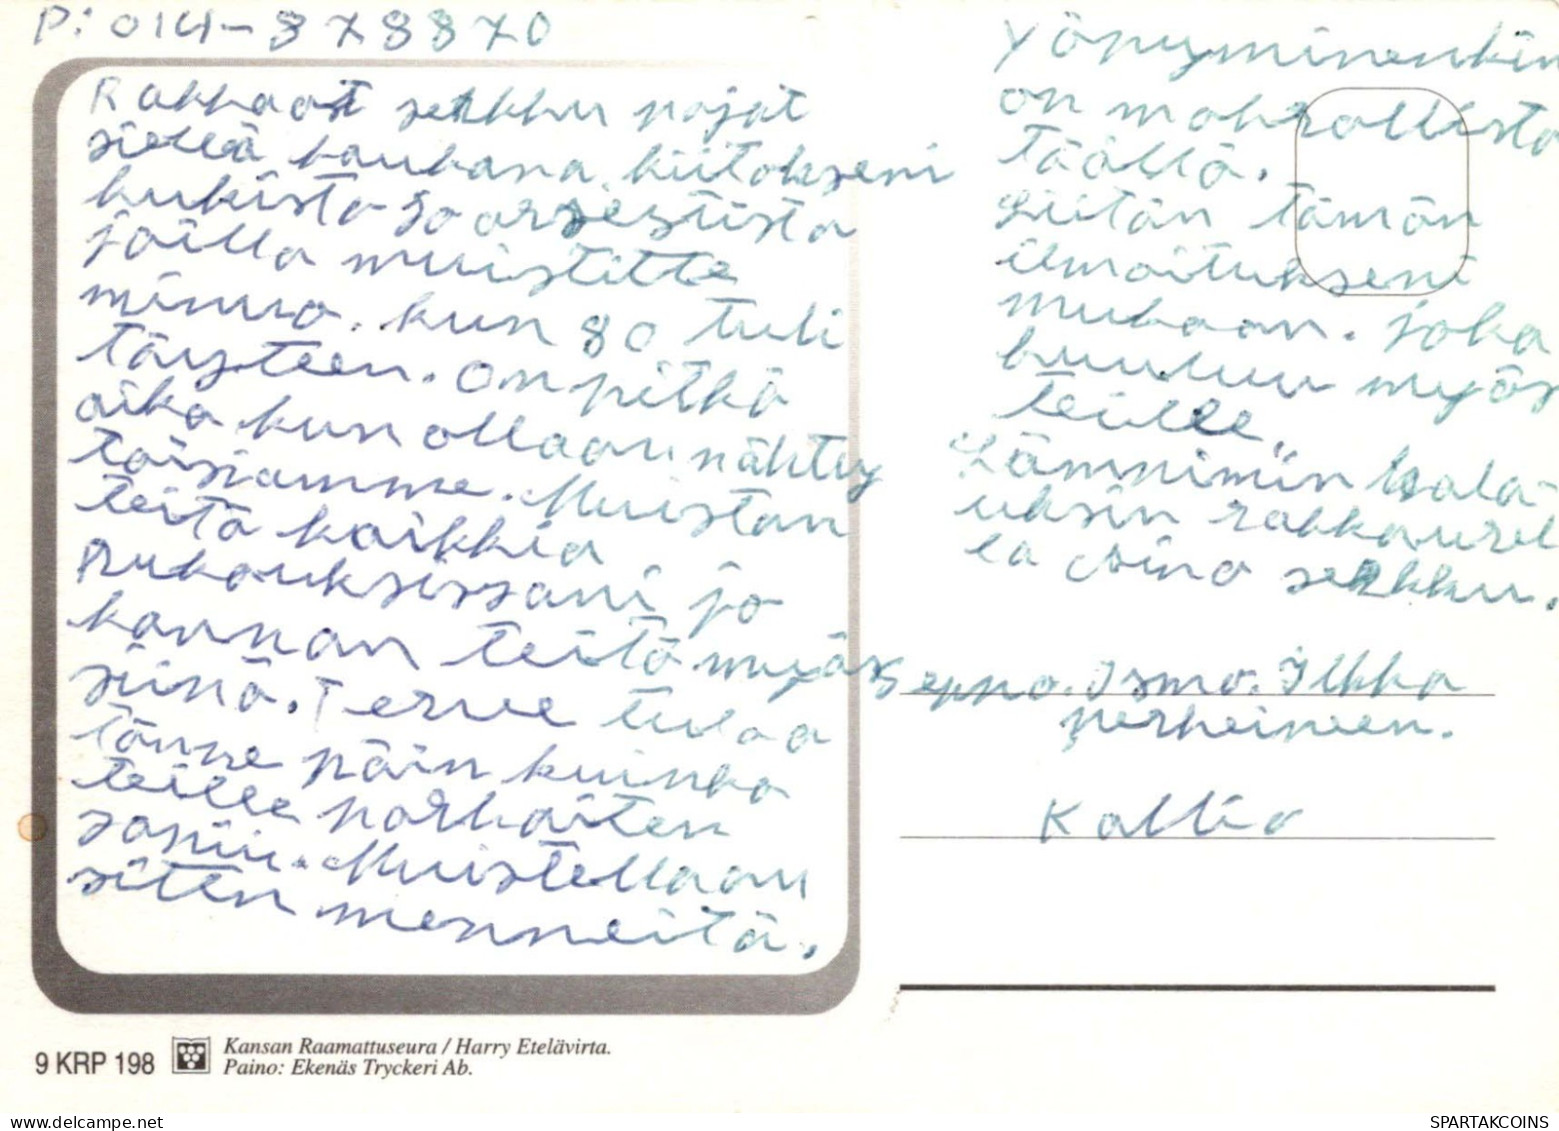 P: 014-378870
Rakkaat serkku pojat
siellä kaukana. kiitokseni
kukista ja
joilla muistitte
minua. kun 80 tuli
täyteen. On pitkä
aika kun ollaan nähty
toisiamme. Muistan
teitä kaikkia
Rukouksissani ja
kannan teitä myös
siinä. Terve tuloa
tänne päin kuinka
teille parhaiten
sopiii. Muistellaan
siten menneitä.
Yöpyminenkin
on mahdollista
täällä.
Liitän tämän
ilmoitukseni
mukaan. joka
kuuluu myös
teille.
Lämpimiin hala-
uksin rakkaudel
la Aino serkku.
Seppo. Ismo. Ilkka
perheineen.
Kallio
9 KRP 198
Kansan Raamattuseura / Harry Etelävirta.
Paino: Ekenäs Tryckeri Ab.
SPARTAKCOINS